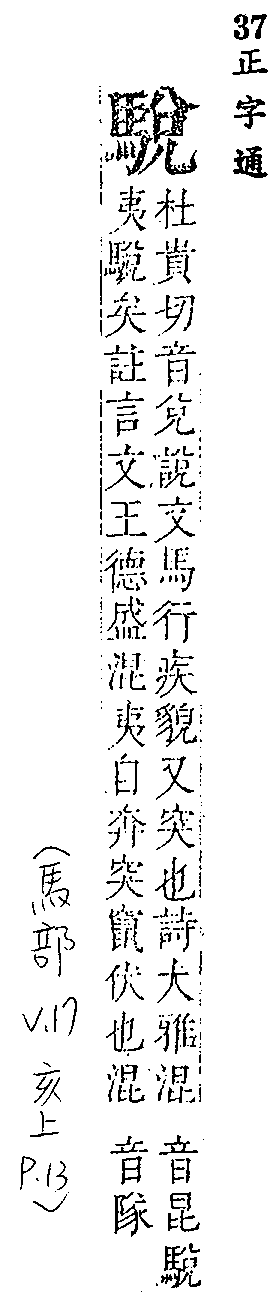 37正字通
駾
杜貴切音兌說文馬行疾貌又突也詩大雅混 音昆駾
夷駾矣註言文王德盛混夷自奔突竄伏也混 音隊
(馬部 V.17 亥上 P.13)